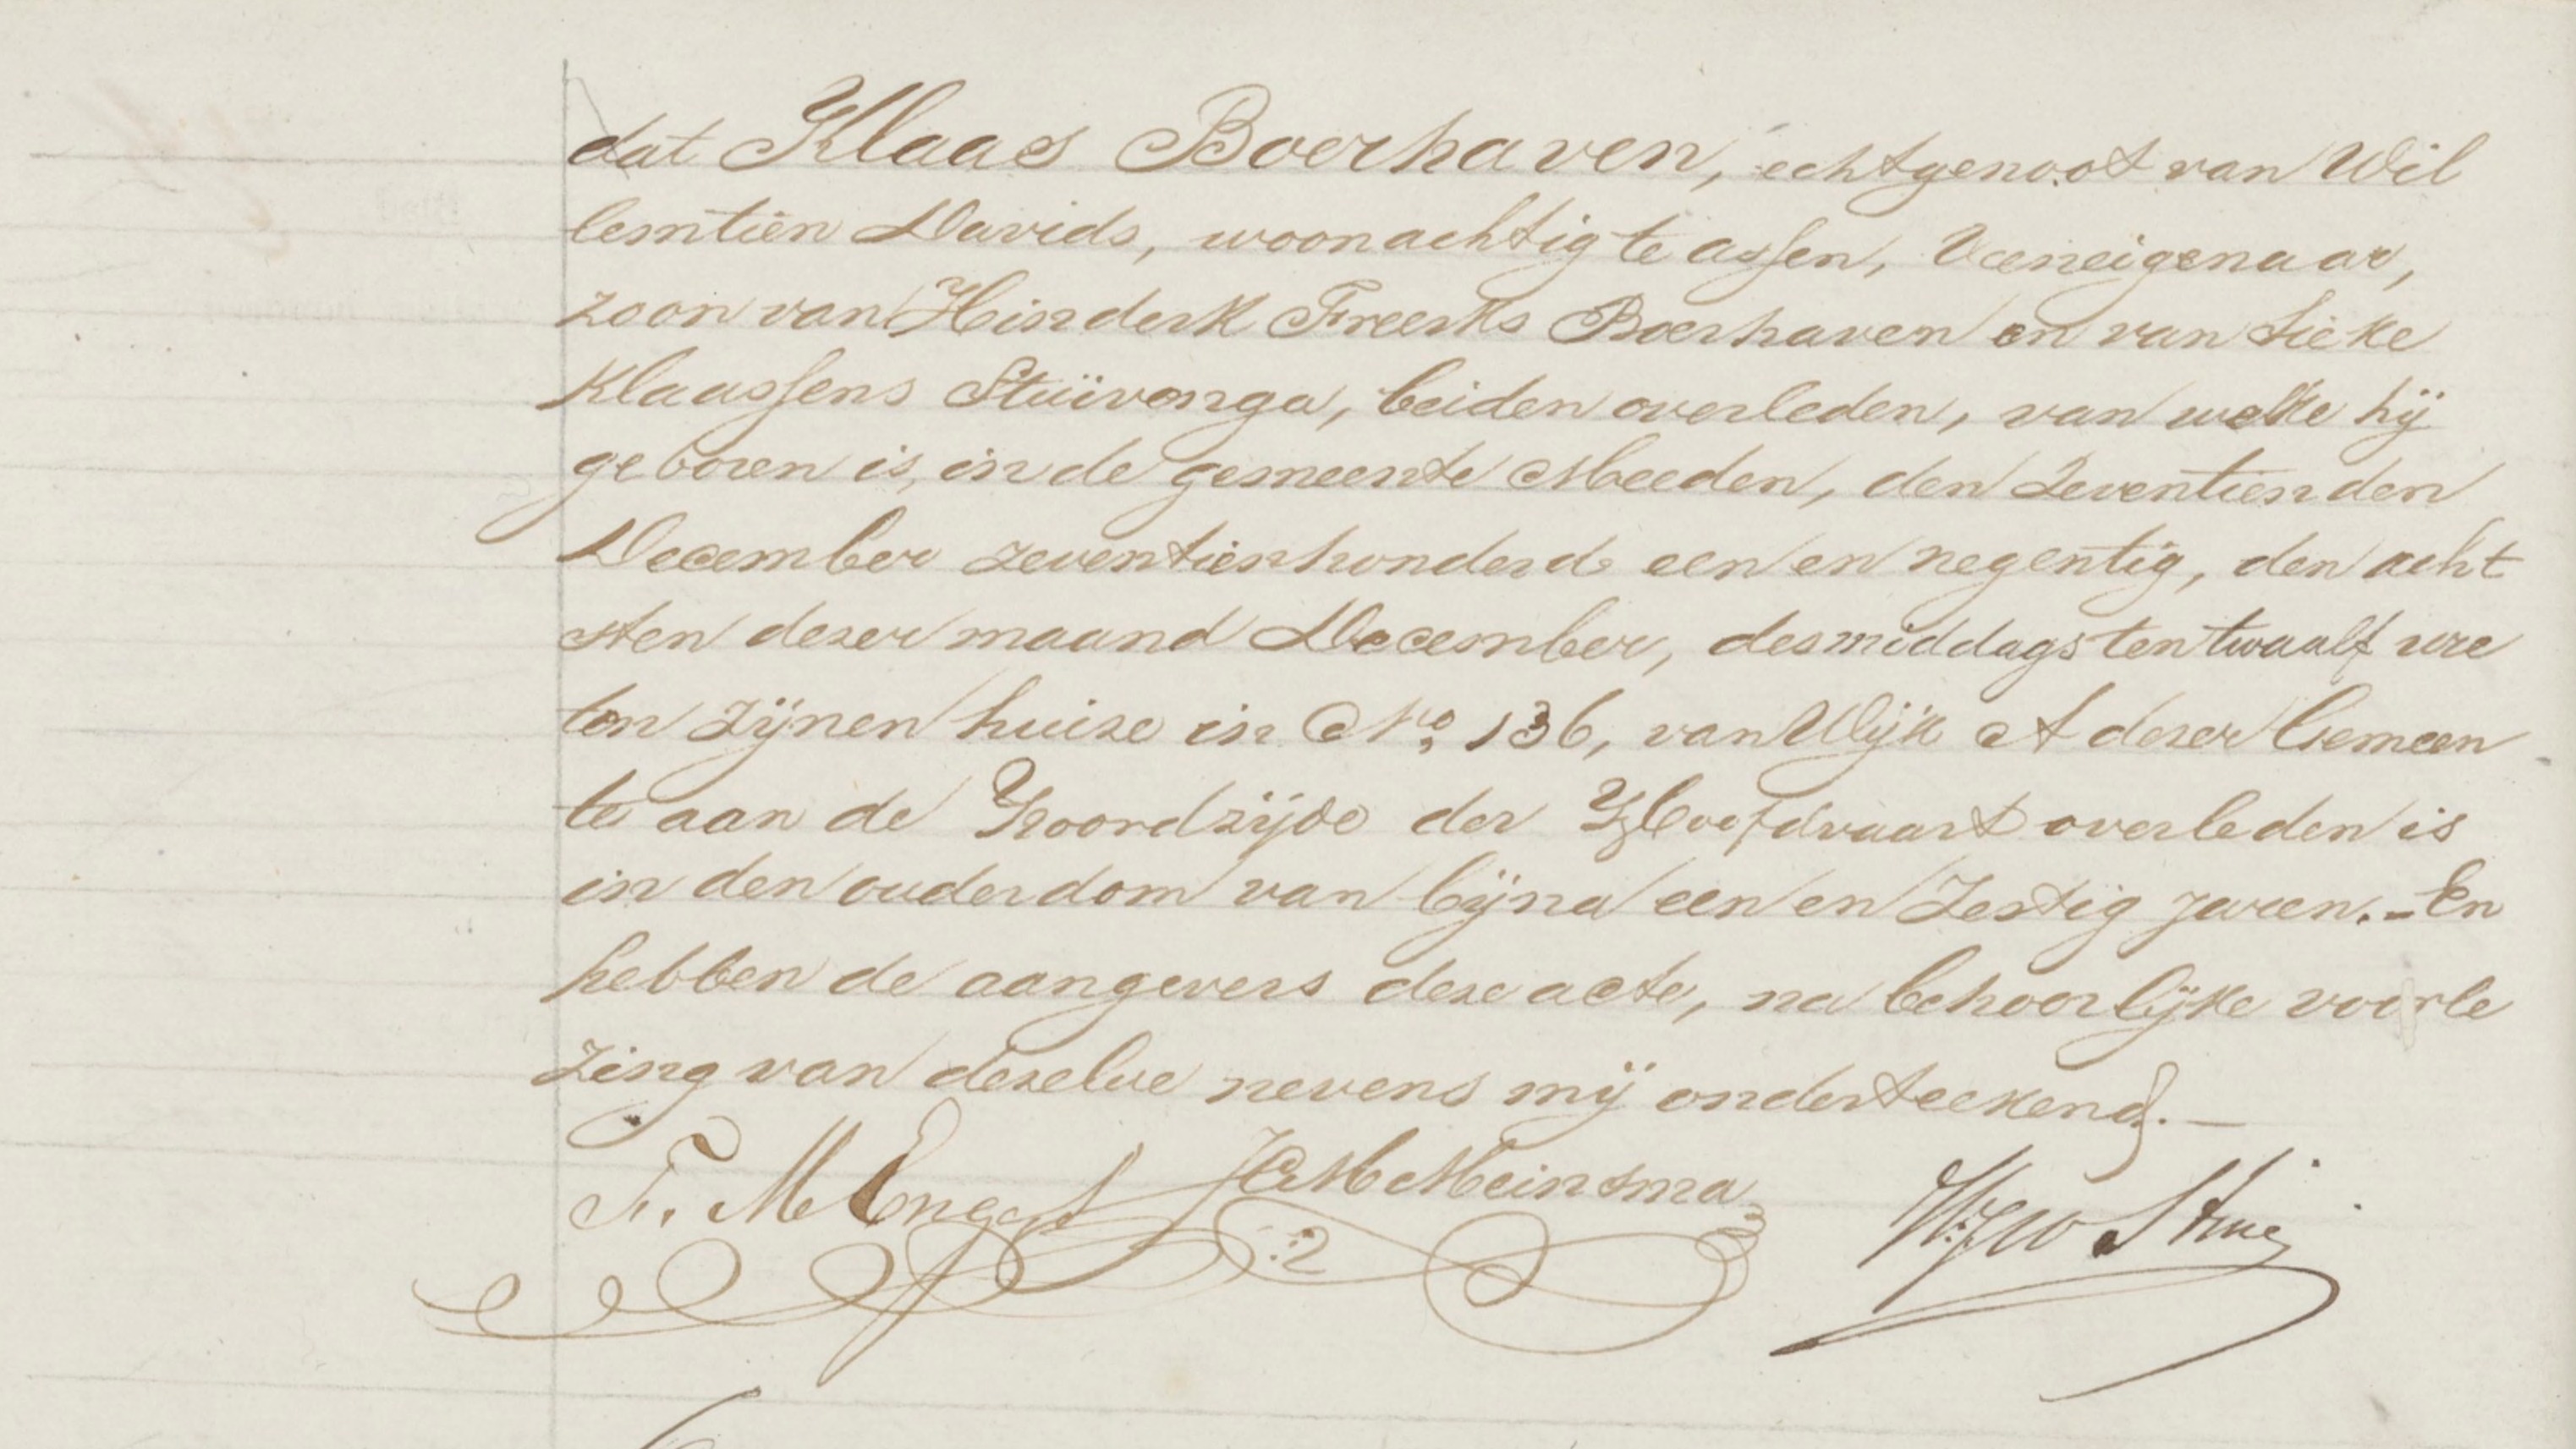 dat Klaas Boerhaven, echtgenoot van Wil
lemtien Davids, woonachtig te assen, Veeneigenaar,
zoon van Hinderk Freerks Boerhaven en van Sieke
Klaassens Stuivenga, beiden overleden, van welke hij
geboren is, in de gemeente Meeden, den Zeventienden
December zeventienhonderd een en negentig, den acht
sten dezer maand December, desmiddags ten twaalf ure
ten zijnen huize in No. 136, van Wijk A dezer Gemeen
te aan de Noordzijde der Hoofdvaart overleden is
in den ouderdom van bijna een en Zestig jaren. - En
hebben de aangevers deze acte, na behoorlijke voorle
Zing van dezelve nevens mij onderteekend. —
F. M Engel HM Meintsma